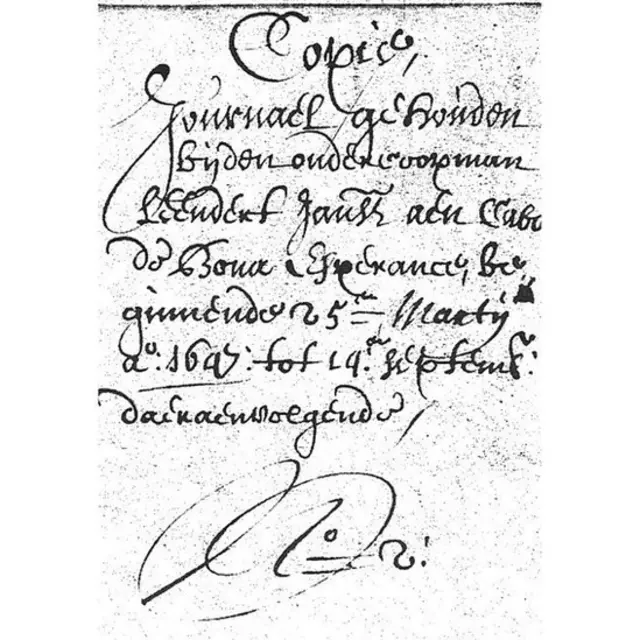 Copie,
Journael gehouden
bijden ondercoopman
Leendert Jansz aen Cabo
de Bona Esperance, be„
ginnende 25en Martij
Ao: 1647: tot 14en Septemb:
daeraenvolgende,
No 2: